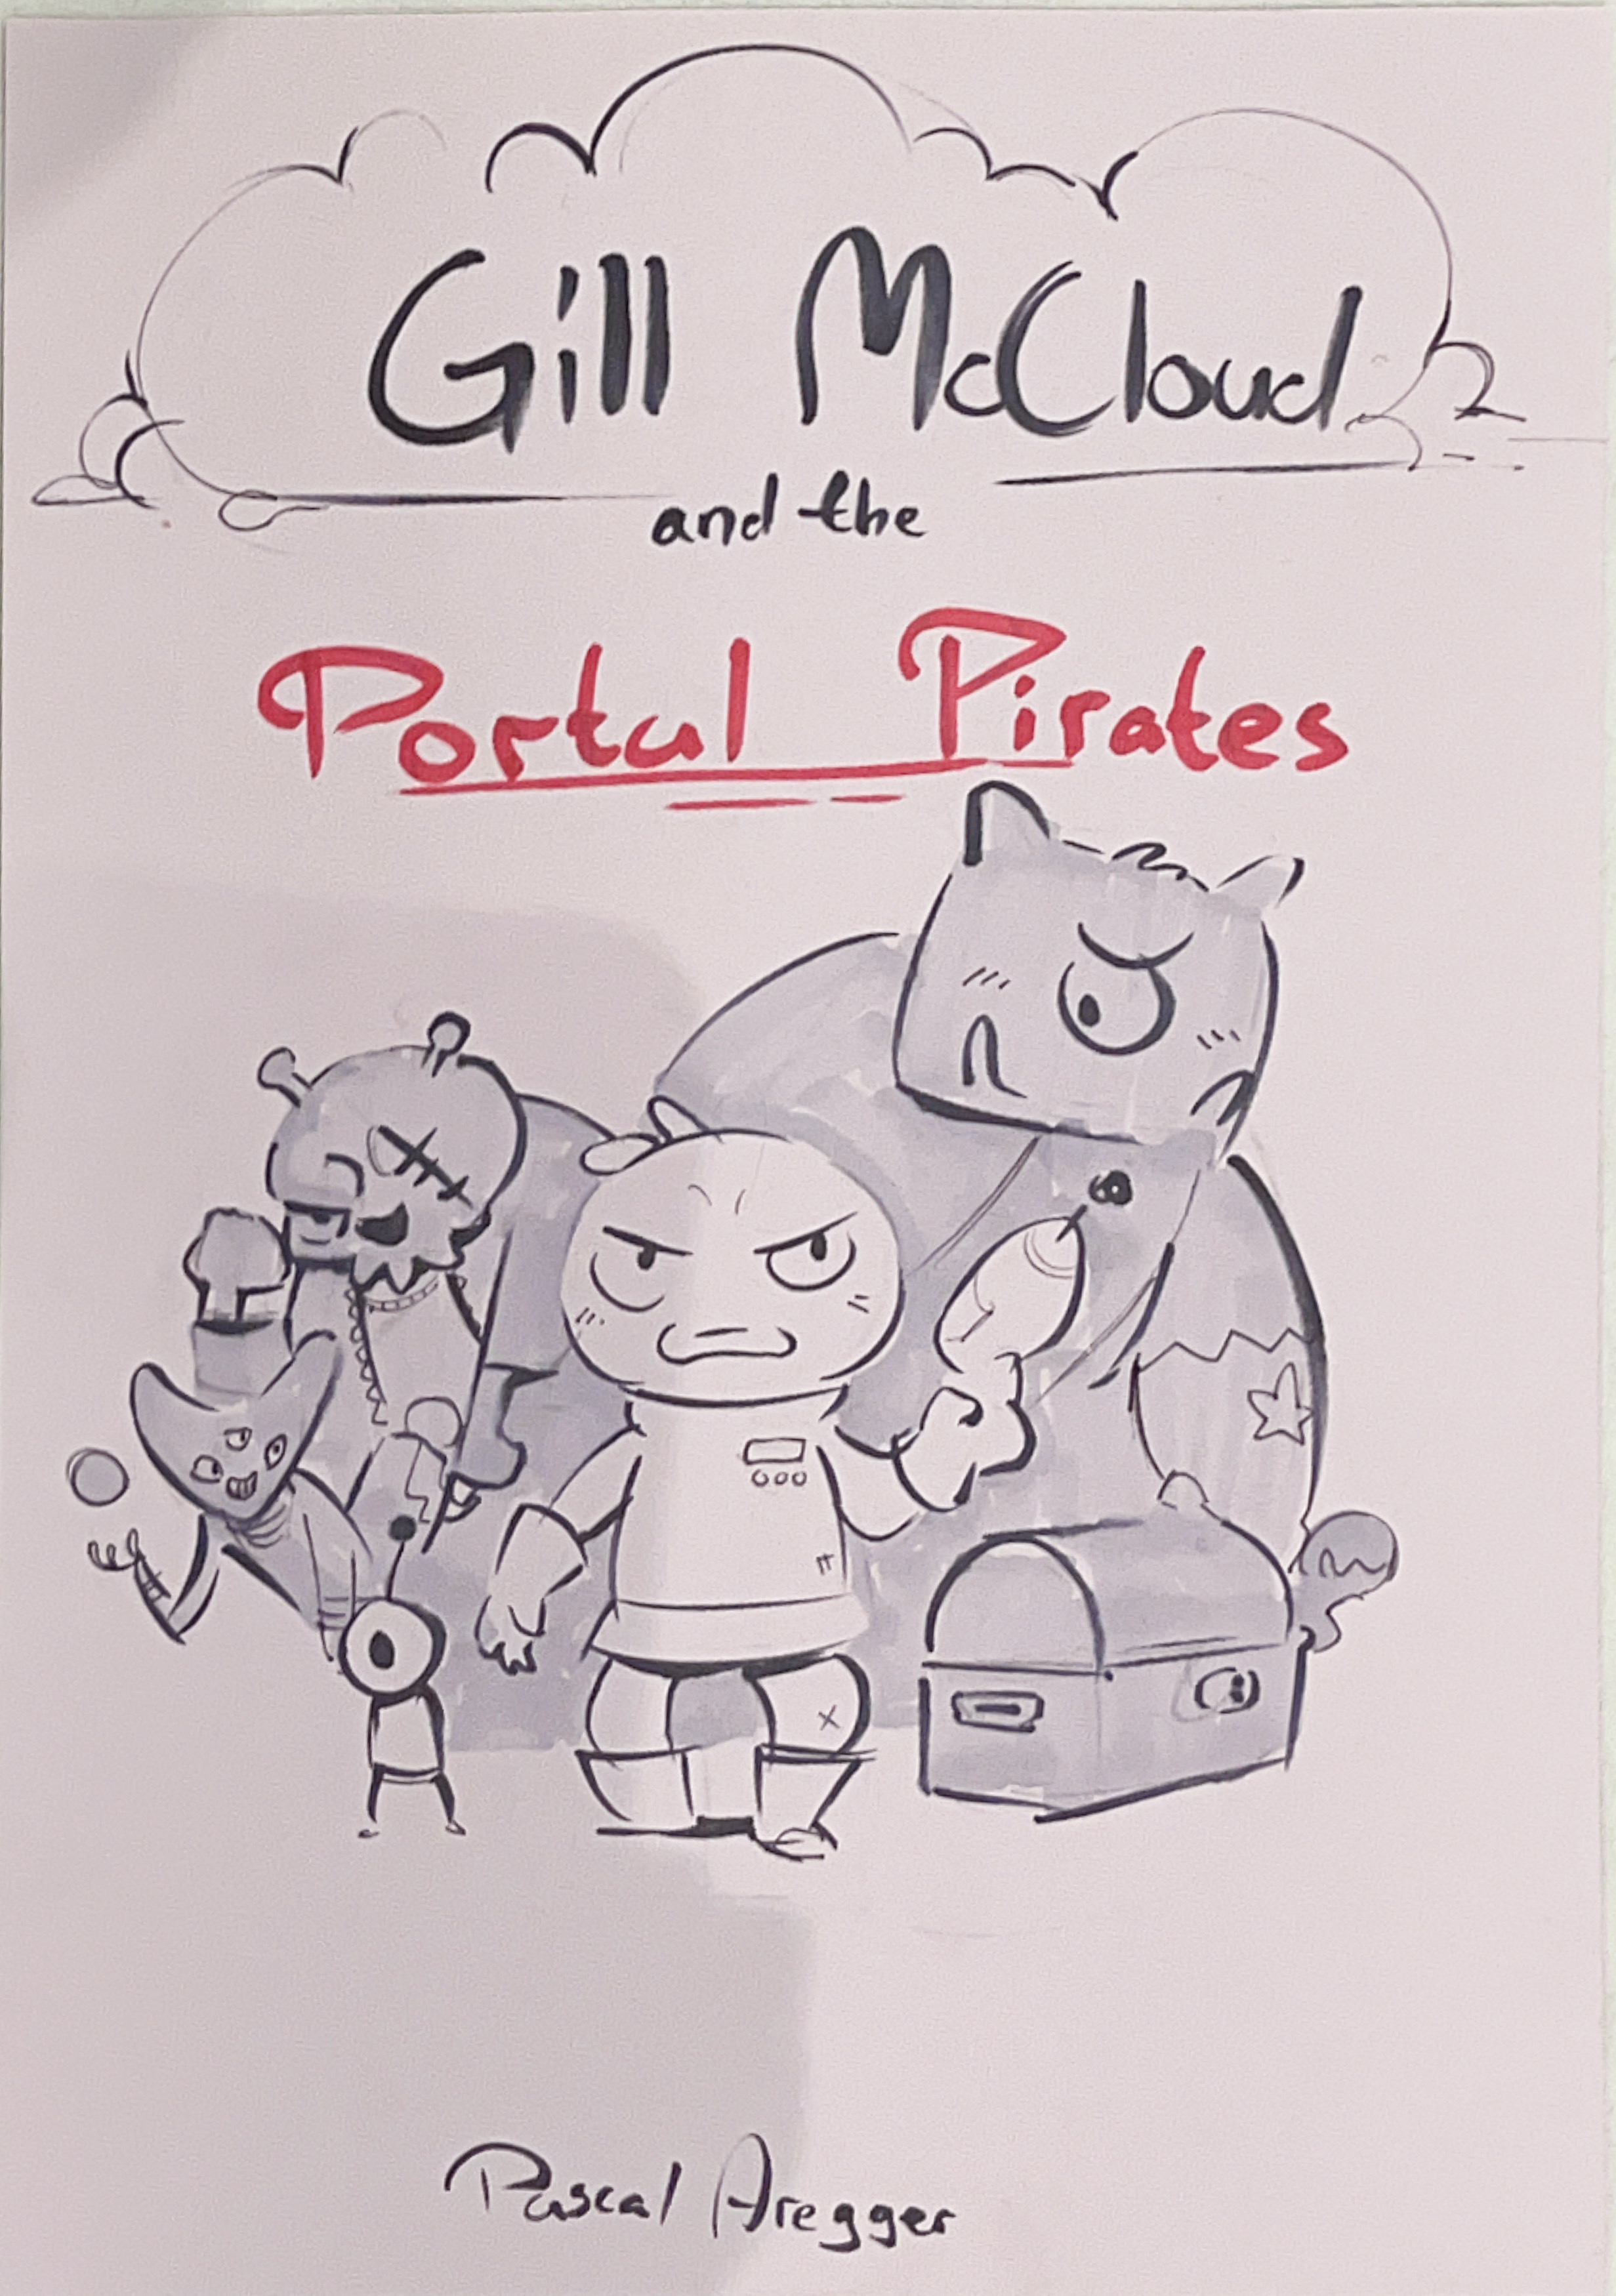 Gill McCloud
and the
Portal Pirates
Pascal Aregger